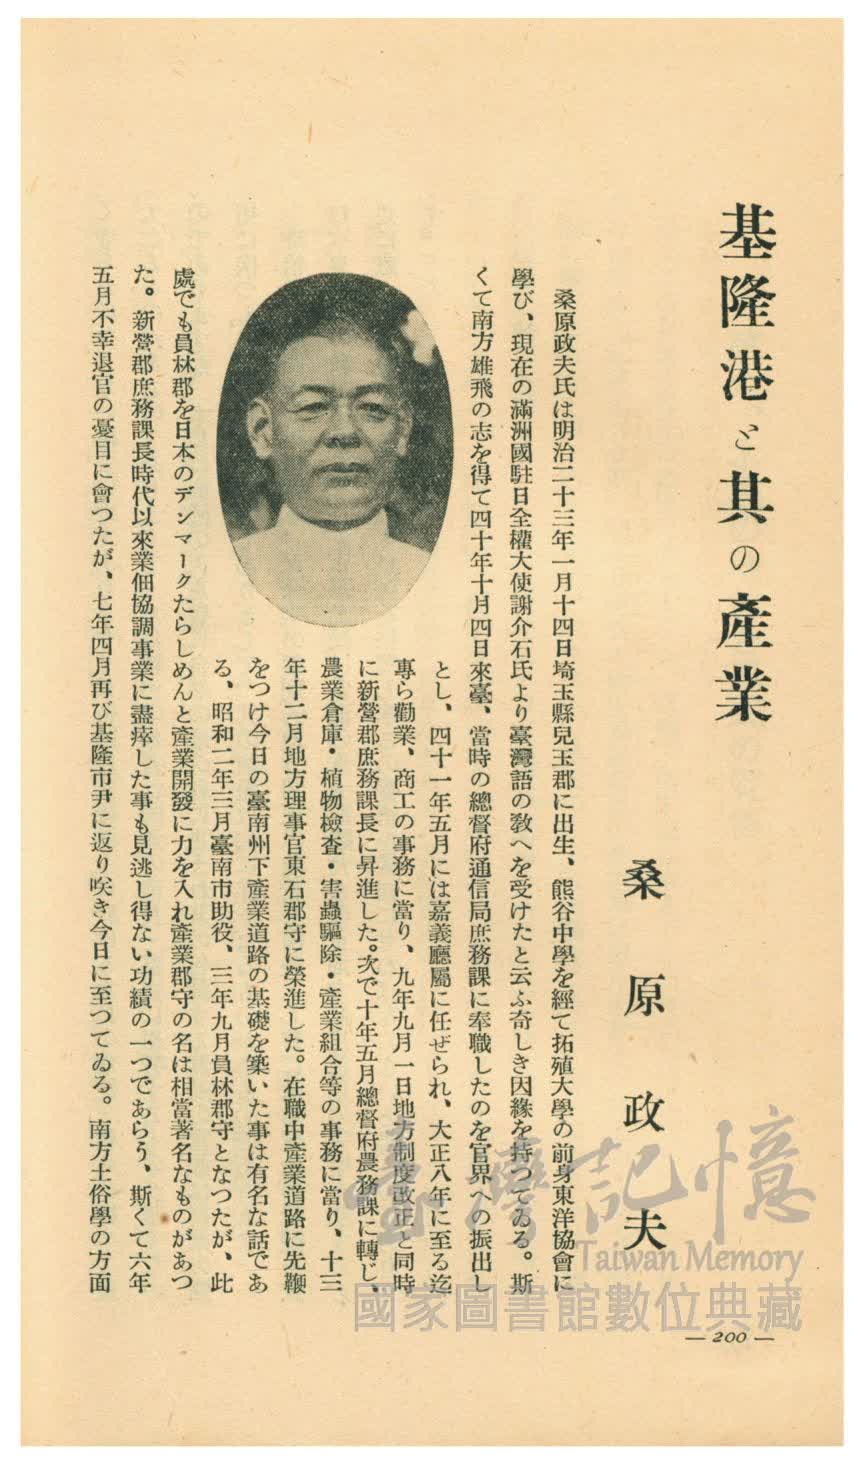 基隆港と其の產業
桑原政夫
桑原政夫氏は明治二十三年一月十四日埼玉縣兒玉郡に出生、熊谷中學を經て拓殖大學の前身東洋協會に
學び、現在の滿洲國駐日全權大使謝介石氏より臺灣語の敎へを受けたと云ふ奇しき因緣を持つてゐる。斯
くて南方雄飛の志を得て四十年十月四日來臺、當時の總督府通信局庶務課に奉職したのを官界への振出し
とし、四十一年五月には嘉義廳屬に任ぜられ、大正八年に至る迄
專ら勸業、商工の事務に當り、九年九月一日地方制度改正と同時
に新營郡庶務課長に昇進した。次で十年五月總督府農務課に轉じ、
農業倉庫・植物檢査・害蟲驅除・產業組合等の事務に當り、十三
年十二月地方理事官東石郡守に榮進した。在職中產業道路に先鞭
をつけ今日の臺南州下產業道路の基礎を築いた事は有名な話であ
る、昭和二年三月臺南市助役、三年九月員林郡守となつたが、此
處でも員林郡を日本のデンマークたらしめんと產業開發に力を入れ產業郡守の名は相當著名なものがあつ
た。新營郡庶務課長時代以來業佃協調事業に盡瘁した事も見逃し得ない功績の一つであらう、斯くて六年
五月不幸退官の憂目に會つたが、七年四月再び基隆市尹に返り咲き今日に至つてゐる。南方土俗學の方面
臺灣記憶
Taiwan Memory
國家圖書館數位典藏
— 200 —